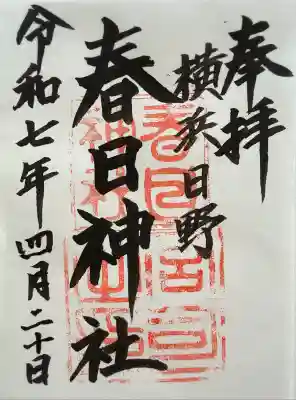 奉拝
横浜日野
春日神社
令和七年四月二十日